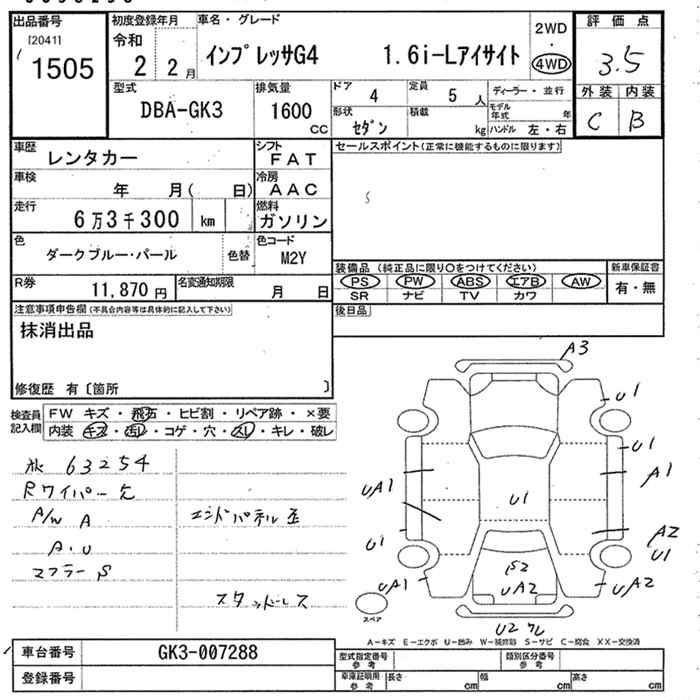 出品番号
[2041]
1505
初度登録年月
令和
2 2月
車名・グレード
インプレッサG4 1.6i-Lアイサイト
2WD
・
4WD
評価点
3.5
外装 内装
C B
型式
DBA-GK3
排気量
1600
CC
ドア
4
定員
5 人
ディーラー・並行
形状
セダン
積載
kg
モデル年式 年
ハンドル 左・右
車歴
レンタカー
シフト
FAT
車検
年 月( 日)
冷房
AAC
走行
6万3千300 km
燃料
ガソリン
色
ダークブルー・パール
色替
色コード
M2Y
R券
11,870 円
名変通知期限
月 日
セールスポイント(正常に機能するものに限ります)
装備品 (純正品に限り○をつけてください)
新車保証書
PS PW ABS エアB AW
有・無
SR ナビ TV カワ
後日品
注意事項申告欄(不具合内容等は具体的に記入して下さい)
抹消出品
修復歴 有〔箇所 〕
検査員
記入欄
FW キズ・飛石・ヒビ割・リペア跡・×要
内装 キズ・汚レ・コゲ・穴・スレ・キレ・破レ
63254
Rワイパー欠
A/W A
A.U
マフラーS
エンドパネル歪
スタッドレス
A3
U1
U1
A1
A2
U1
UA2
UA1
U1
UA1
U1
S2
UA2
U2 ワレ
スペア
A-キズ E-エクボ U-凹み W-補修跡 S-サビ C-腐食 XX-交換済
車台番号
GK3-007288
登録番号
型式指定番号
参考
類別区分番号
参考
車庫証明用
参考
長さ cm
幅 cm
高さ cm